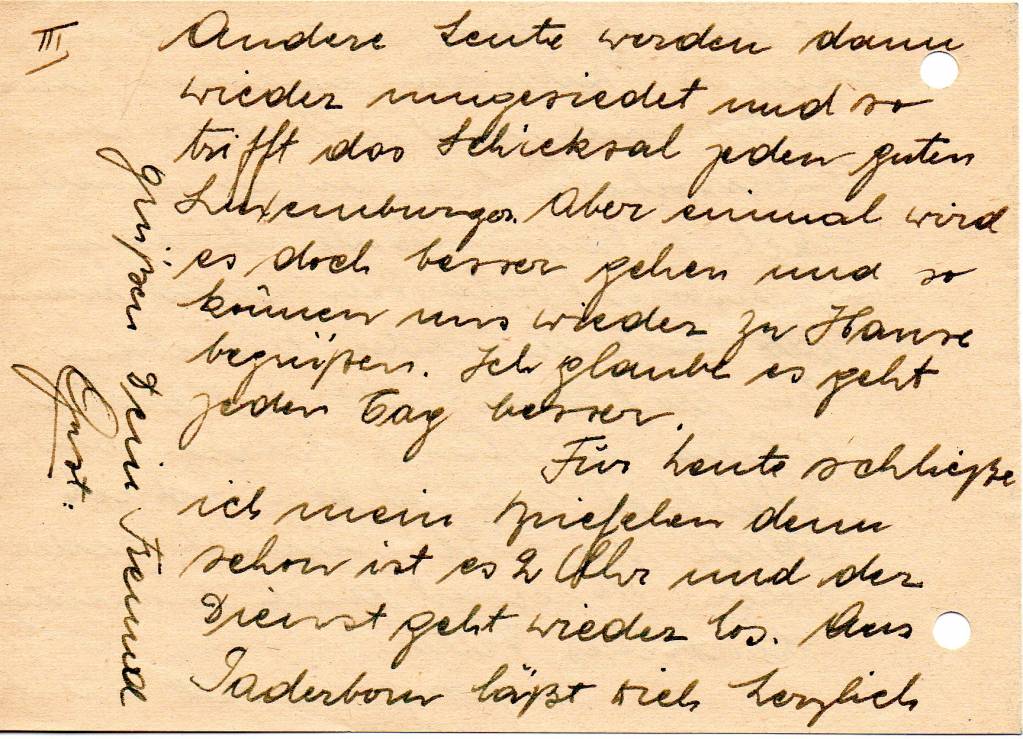 III)
Andere Leute werden dann
wieder umgesiedet und so
trifft das Schicksal jeden guten
Luxemburger. Aber einmal wird
es doch besser gehen und so
können uns wieder zu Hause
begrüßen. Ich glaube es geht
jeden Tag besser.
Für heute schließe
ich mein Briefchen denn
schon ist es 2 Uhr und der
Dienst geht wieder los. Aus
Paderborn läßt dich herzlich
grüßen dein Freund
Gust.